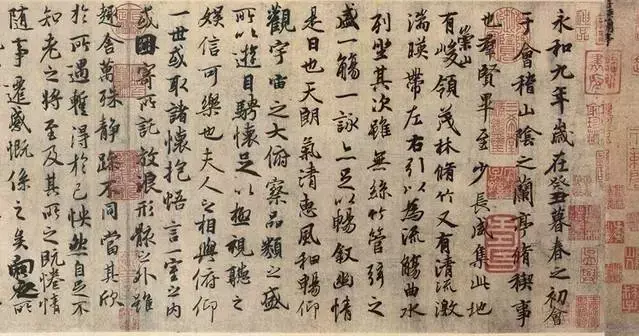 永和九年歲在癸丑暮春之初會
于會稽山陰之蘭亭脩稧事
也羣賢畢至少長咸集此地
有崇山峻領茂林脩竹又有清流激
湍暎帶左右引以為流觴曲水
列坐其次雖無絲竹管弦之
盛一觴一詠亦足以暢叙幽情
是日也天朗氣清惠風和暢仰
觀宇宙之大俯察品類之盛
所以遊目騁懷足以極視聽之
娛信可樂也夫人之相與俯仰
一世或取諸懷抱悟言一室之內
或因寄所託放浪形骸之外雖
趣舍萬殊靜躁不同當其欣
於所遇暫得於己怏然自足不
知老之將至及其所之既惓情
隨事遷感慨係之矣向之所